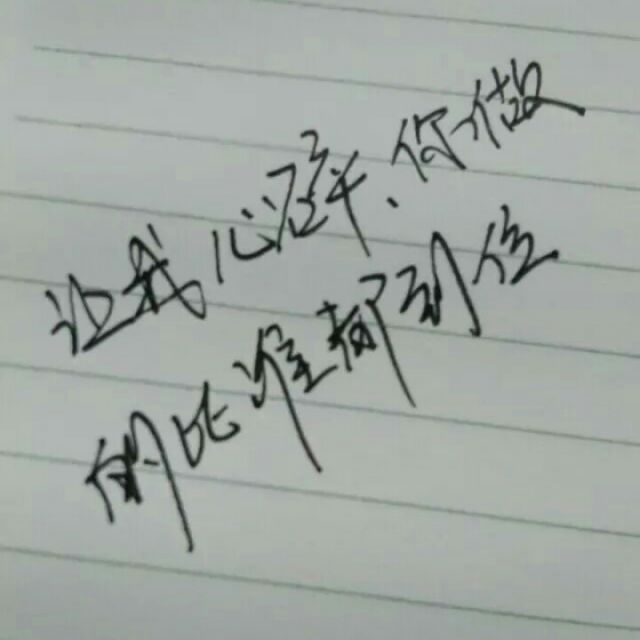 让我心浮、你做
的比谁都到位